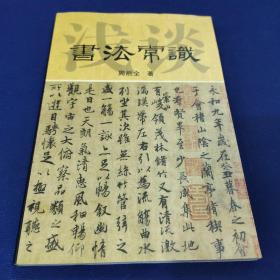 浅谈
書法常識
著
永和九年歲在癸丑暮春之初會
于會稽山陰之蘭亭脩稧事
也群賢畢至少長咸集此地
有崇山峻領茂林脩竹又有清流激
湍暎帶左右引以為流觴曲水
列坐其次雖無絲竹管弦之
盛一觴一詠亦足以暢敘幽情
是日也天朗氣清惠風和暢仰
觀宇宙之大俯察品類之盛
所以遊目騁懷足以極視聽之